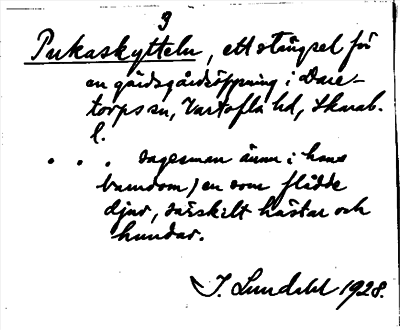 3
Pukaskytteln, ett stängsel för
en gärdsgårdsöppning i Dare-
torps sn, Vartofta hd, Skarab.
l.
. . . sagesman ännu i hans
barndom) en som flådde
djur, särskilt hästar och
hundar.
J. Lundahl 1928.